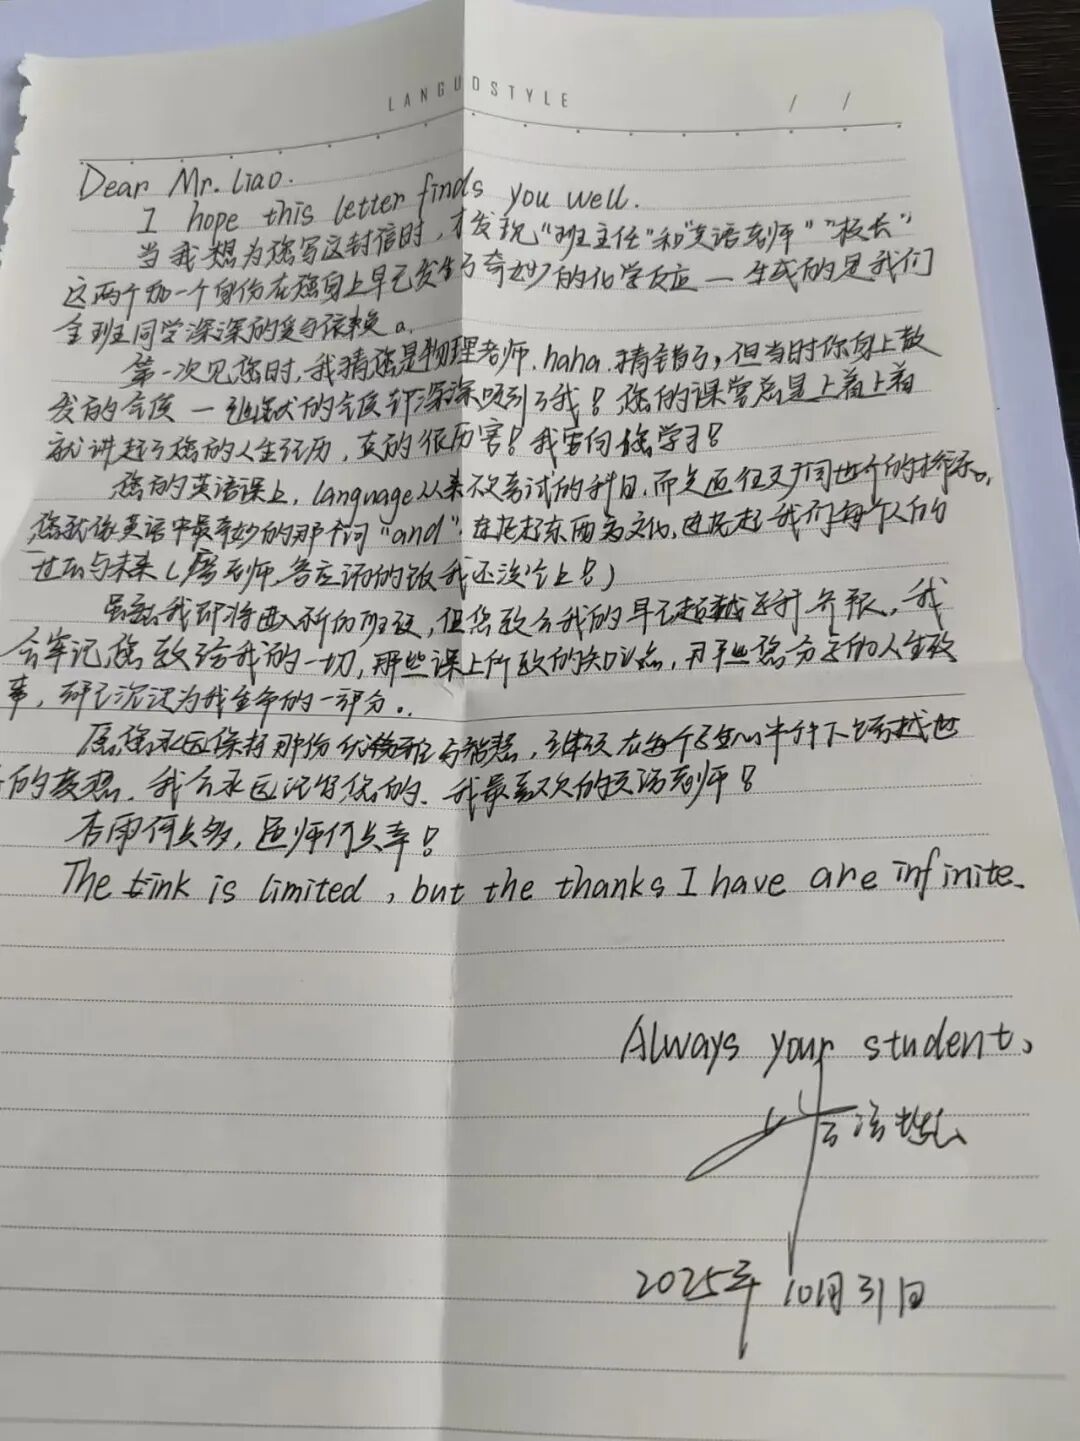 LANGUO STYLE
/ /
Dear Mr. Liao.
I hope this letter finds you well.
当我想为您写这封信时，才发现“班主任”和“英语老师”“校长”
这两个加一个身份在您身上早已发生了奇妙的化学反应 — 生成的是我们
全班同学深深的爱与依赖。
第一次见您时，我猜您是物理老师.haha.猜错了，但当时你身上散
发的气质 — 的气质却深深吸引了我！您的课堂总是上着上着
就讲起了您的人生经历，真的很厉害！我要向您学习！
您的英语课上，language从来不是考试的科目，而是通往不同世界的桥梁。
您就像英语中最奇妙的那个词“and”，连接起东西方文化，连接起我们每个人的
过去与未来（廖老师，答应请的饭我还没吃上！）
虽然我即将进入新的班级，但您教会我的早已超越，我
会牢记您教给我的一切，那些课上所教的知识点，那些您分享的人生故
事，都已沉淀为我生命的一部分..
愿您永远保持那份优雅与智慧，继续在每个学生心中种下跨越世
界的梦想.我会永远记得您的.我最喜欢的英语老师！
春雨何其多，遇师何其幸！
The tink is limited, but the thanks I have are infinite.
Always your student,
2025年10月31日